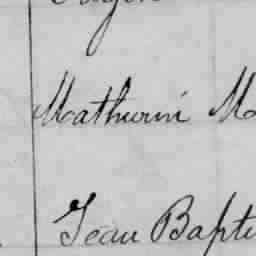 Mathurin M
Jean Bapti